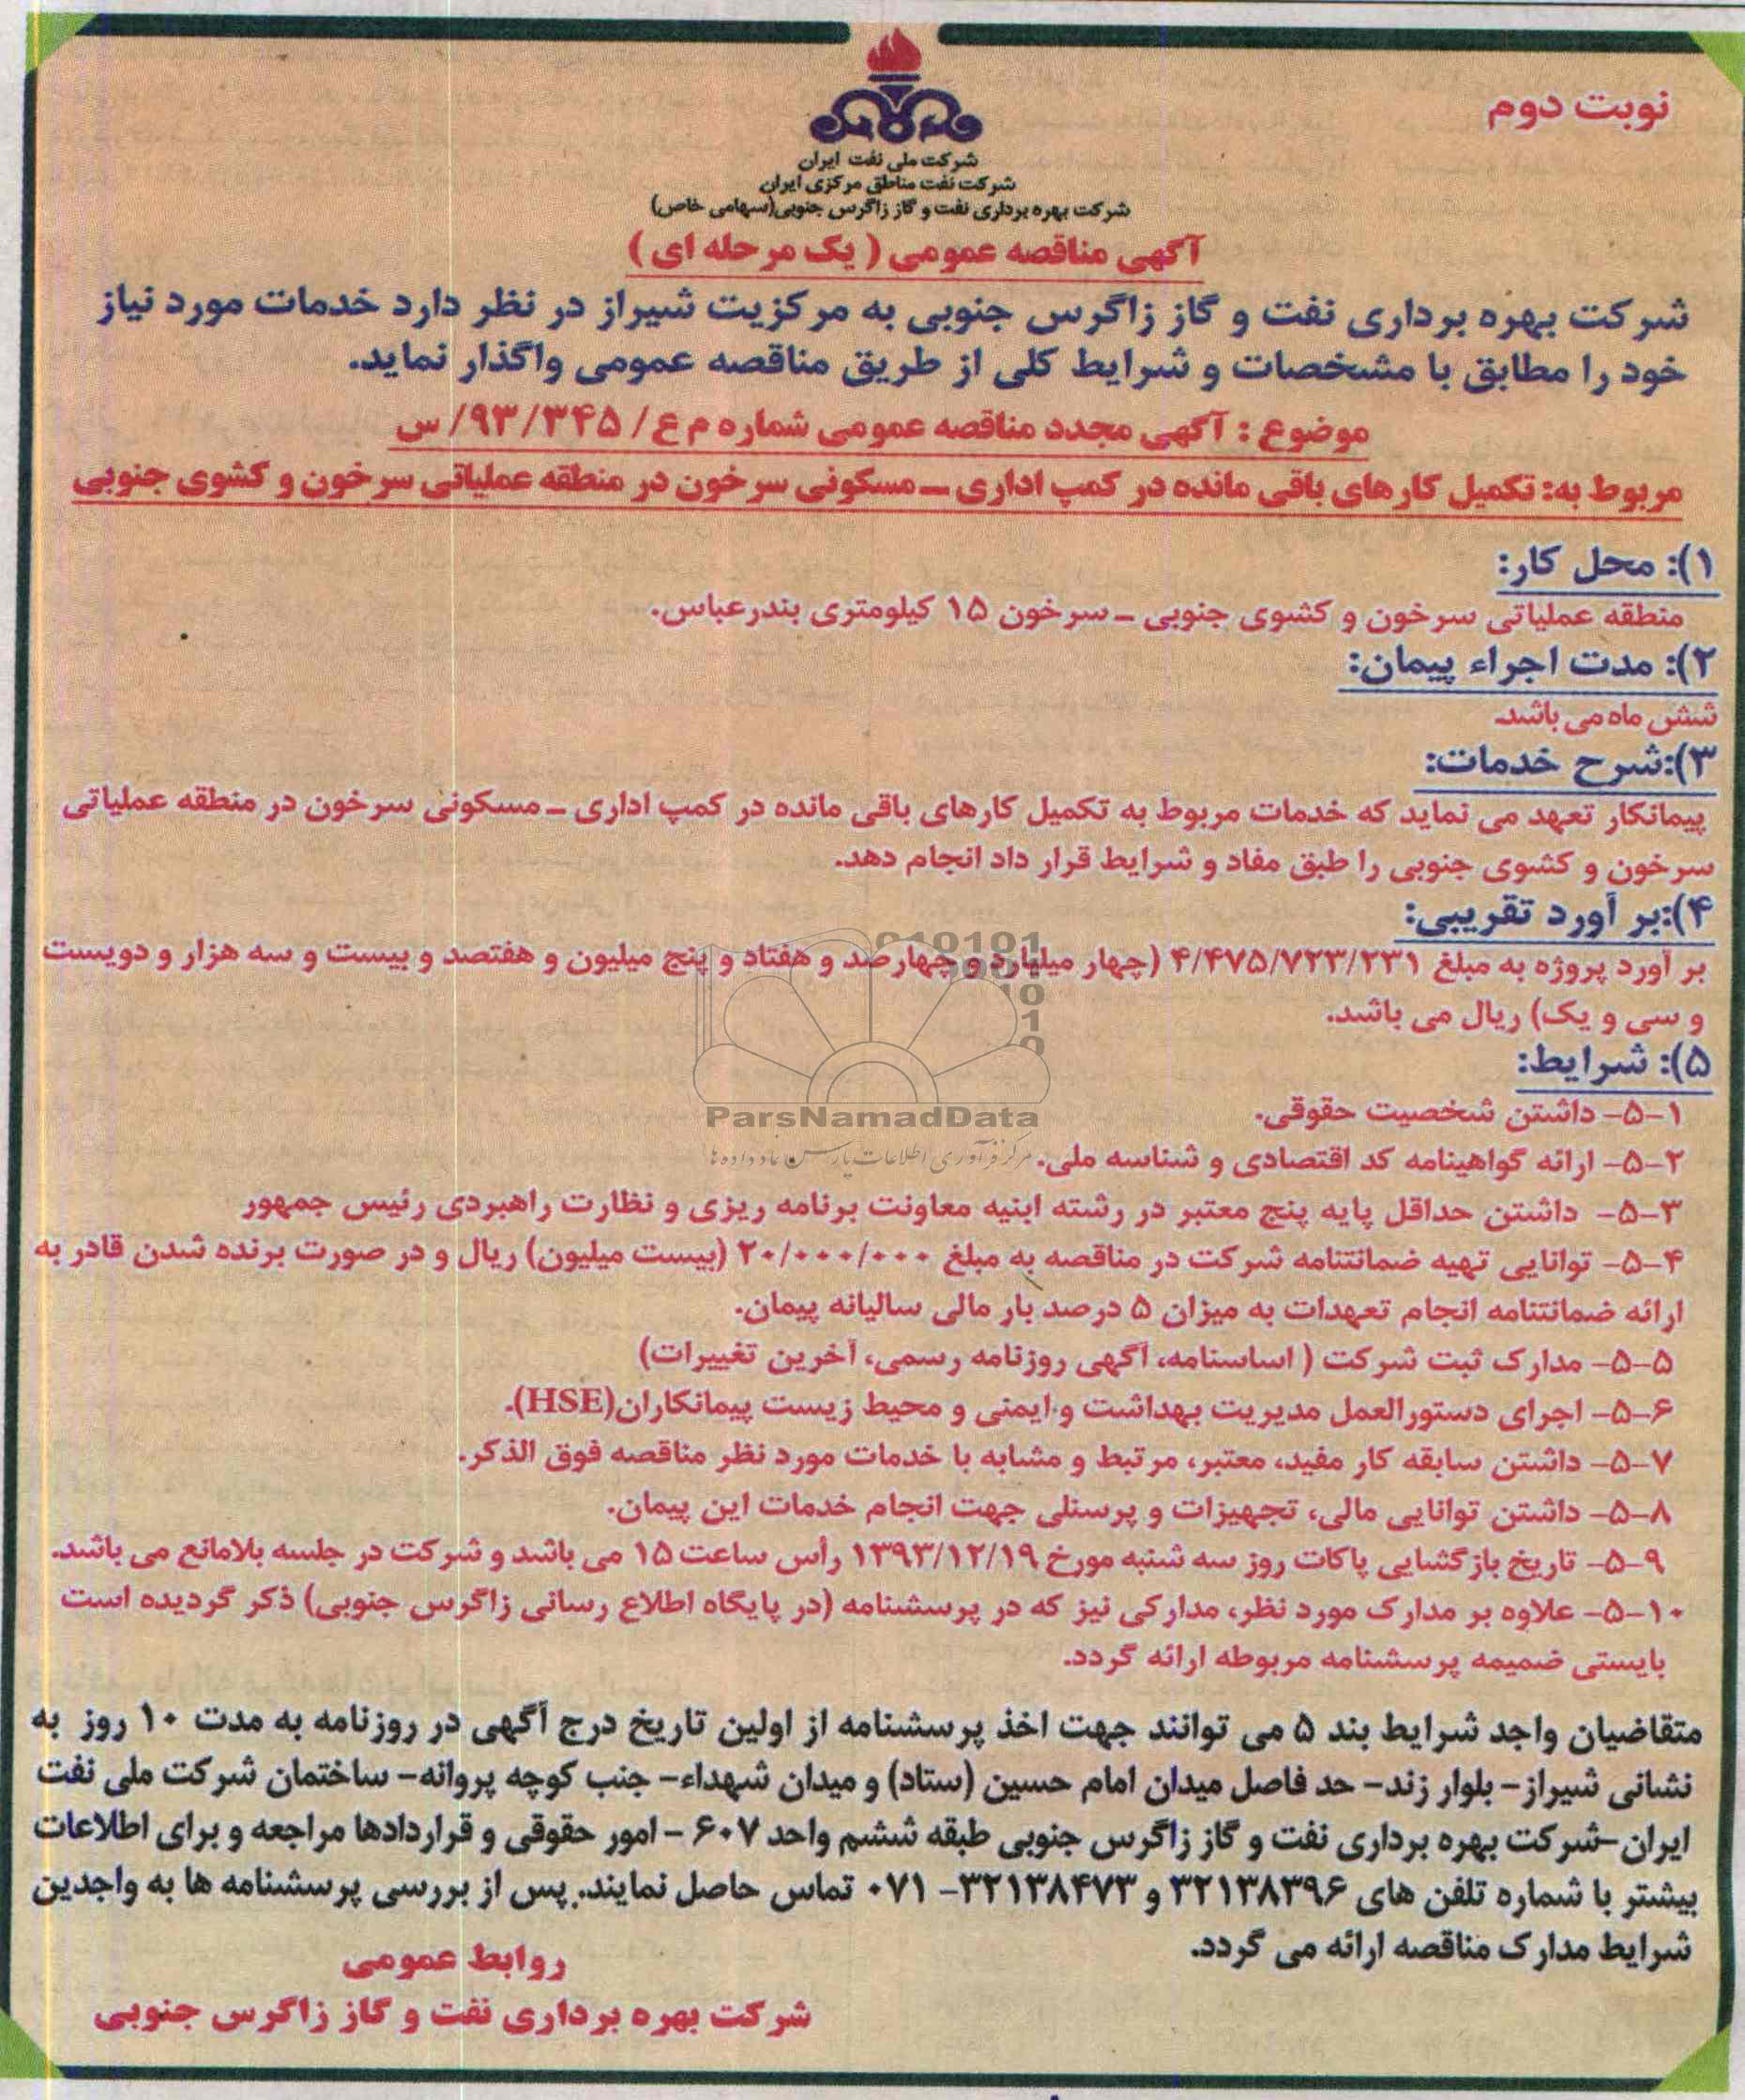 نوبت دوم
شرکت ملی نفت ایران
شرکت نفت مناطق مرکزی ایران
شرکت بهره برداری نفت و گاز زاگرس جنوبی(سهامی خاص)
آگهی مناقصه عمومی ( یک مرحله ای )
شرکت بهره برداری نفت و گاز زاگرس جنوبی به مرکزیت شیراز در نظر دارد خدمات مورد نیاز
خود را مطابق با مشخصات و شرایط کلی از طریق مناقصه عمومی واگذار نماید.
موضوع : آگهی مجدد مناقصه عمومی شماره م ع/ ۹۳/۳۴۵/ س
مربوط به: تکمیل کارهای باقی مانده در کمپ اداری ــ مسکونی سرخون در منطقه عملیاتی سرخون و کشوی جنوبی
۱): محل کار:
منطقه عملیاتی سرخون و کشوی جنوبی ــ سرخون ۱۵ کیلومتری بندرعباس.
۲): مدت اجراء پیمان:
شش ماه می باشد.
۳):شرح خدمات:
پیمانکار تعهد می نماید که خدمات مربوط به تکمیل کارهای باقی مانده در کمپ اداری ــ مسکونی سرخون در منطقه عملیاتی
سرخون و کشوی جنوبی را طبق مفاد و شرایط قرار داد انجام دهد.
۴):بر آورد تقریبی:
بر آورد پروژه به مبلغ ۴/۴۷۵/۷۲۳/۲۳۱ (چهار میلیارد و چهارصد و هفتاد و پنج میلیون و هفتصد و بیست و سه هزار و دویست
و سی و یک) ریال می باشد.
۵): شرایط:
۵-۱- داشتن شخصیت حقوقی.
ParsNamadData
۵-۲- ارائه گواهینامه کد اقتصادی و شناسه ملی.
مرکز فرآوری اطلاعات پارس نماد داده ها
۵-۳- داشتن حداقل پایه پنج معتبر در رشته ابنیه معاونت برنامه ریزی و نظارت راهبردی رئیس جمهور
۵-۴- توانایی تهیه ضمانتنامه شرکت در مناقصه به مبلغ ۲۰/۰۰۰/۰۰۰ (بیست میلیون) ریال و در صورت برنده شدن قادر به
ارائه ضمانتنامه انجام تعهدات به میزان ۵ درصد بار مالی سالیانه پیمان.
۵-۵- مدارک ثبت شرکت ( اساسنامه، آگهی روزنامه رسمی، آخرین تغییرات)
۵-۶- اجرای دستورالعمل مدیریت بهداشت و ایمنی و محیط زیست پیمانکاران(HSE).
۵-۷- داشتن سابقه کار مفید، معتبر، مرتبط و مشابه با خدمات مورد نظر مناقصه فوق الذکر.
۵-۸- داشتن توانایی مالی، تجهیزات و پرسنلی جهت انجام خدمات این پیمان.
۵-۹- تاریخ بازگشایی پاکات روز سه شنبه مورخ ۱۳۹۳/۱۲/۱۹ رأس ساعت ۱۵ می باشد و شرکت در جلسه بلامانع می باشد.
۵-۱۰- علاوه بر مدارک مورد نظر، مدارکی نیز که در پرسشنامه (در پایگاه اطلاع رسانی زاگرس جنوبی) ذکر گردیده است
بایستی ضمیمه پرسشنامه مربوطه ارائه گردد.
متقاضیان واجد شرایط بند ۵ می توانند جهت اخذ پرسشنامه از اولین تاریخ درج آگهی در روزنامه به مدت ۱۰ روز به
نشانی شیراز- بلوار زند- حد فاصل میدان امام حسین (ستاد) و میدان شهداء- جنب کوچه پروانه- ساختمان شرکت ملی نفت
ایران-شرکت بهره برداری نفت و گاز زاگرس جنوبی طبقه ششم واحد ۶۰۷ - امور حقوقی و قراردادها مراجعه و برای اطلاعات
بیشتر با شماره تلفن های ۳۲۱۳۸۳۹۶ و ۳۲۱۳۸۴۷۳- ۰۷۱ تماس حاصل نمایند. پس از بررسی پرسشنامه ها به واجدین
شرایط مدارک مناقصه ارائه می گردد.
روابط عمومی
شرکت بهره برداری نفت و گاز زاگرس جنوبی